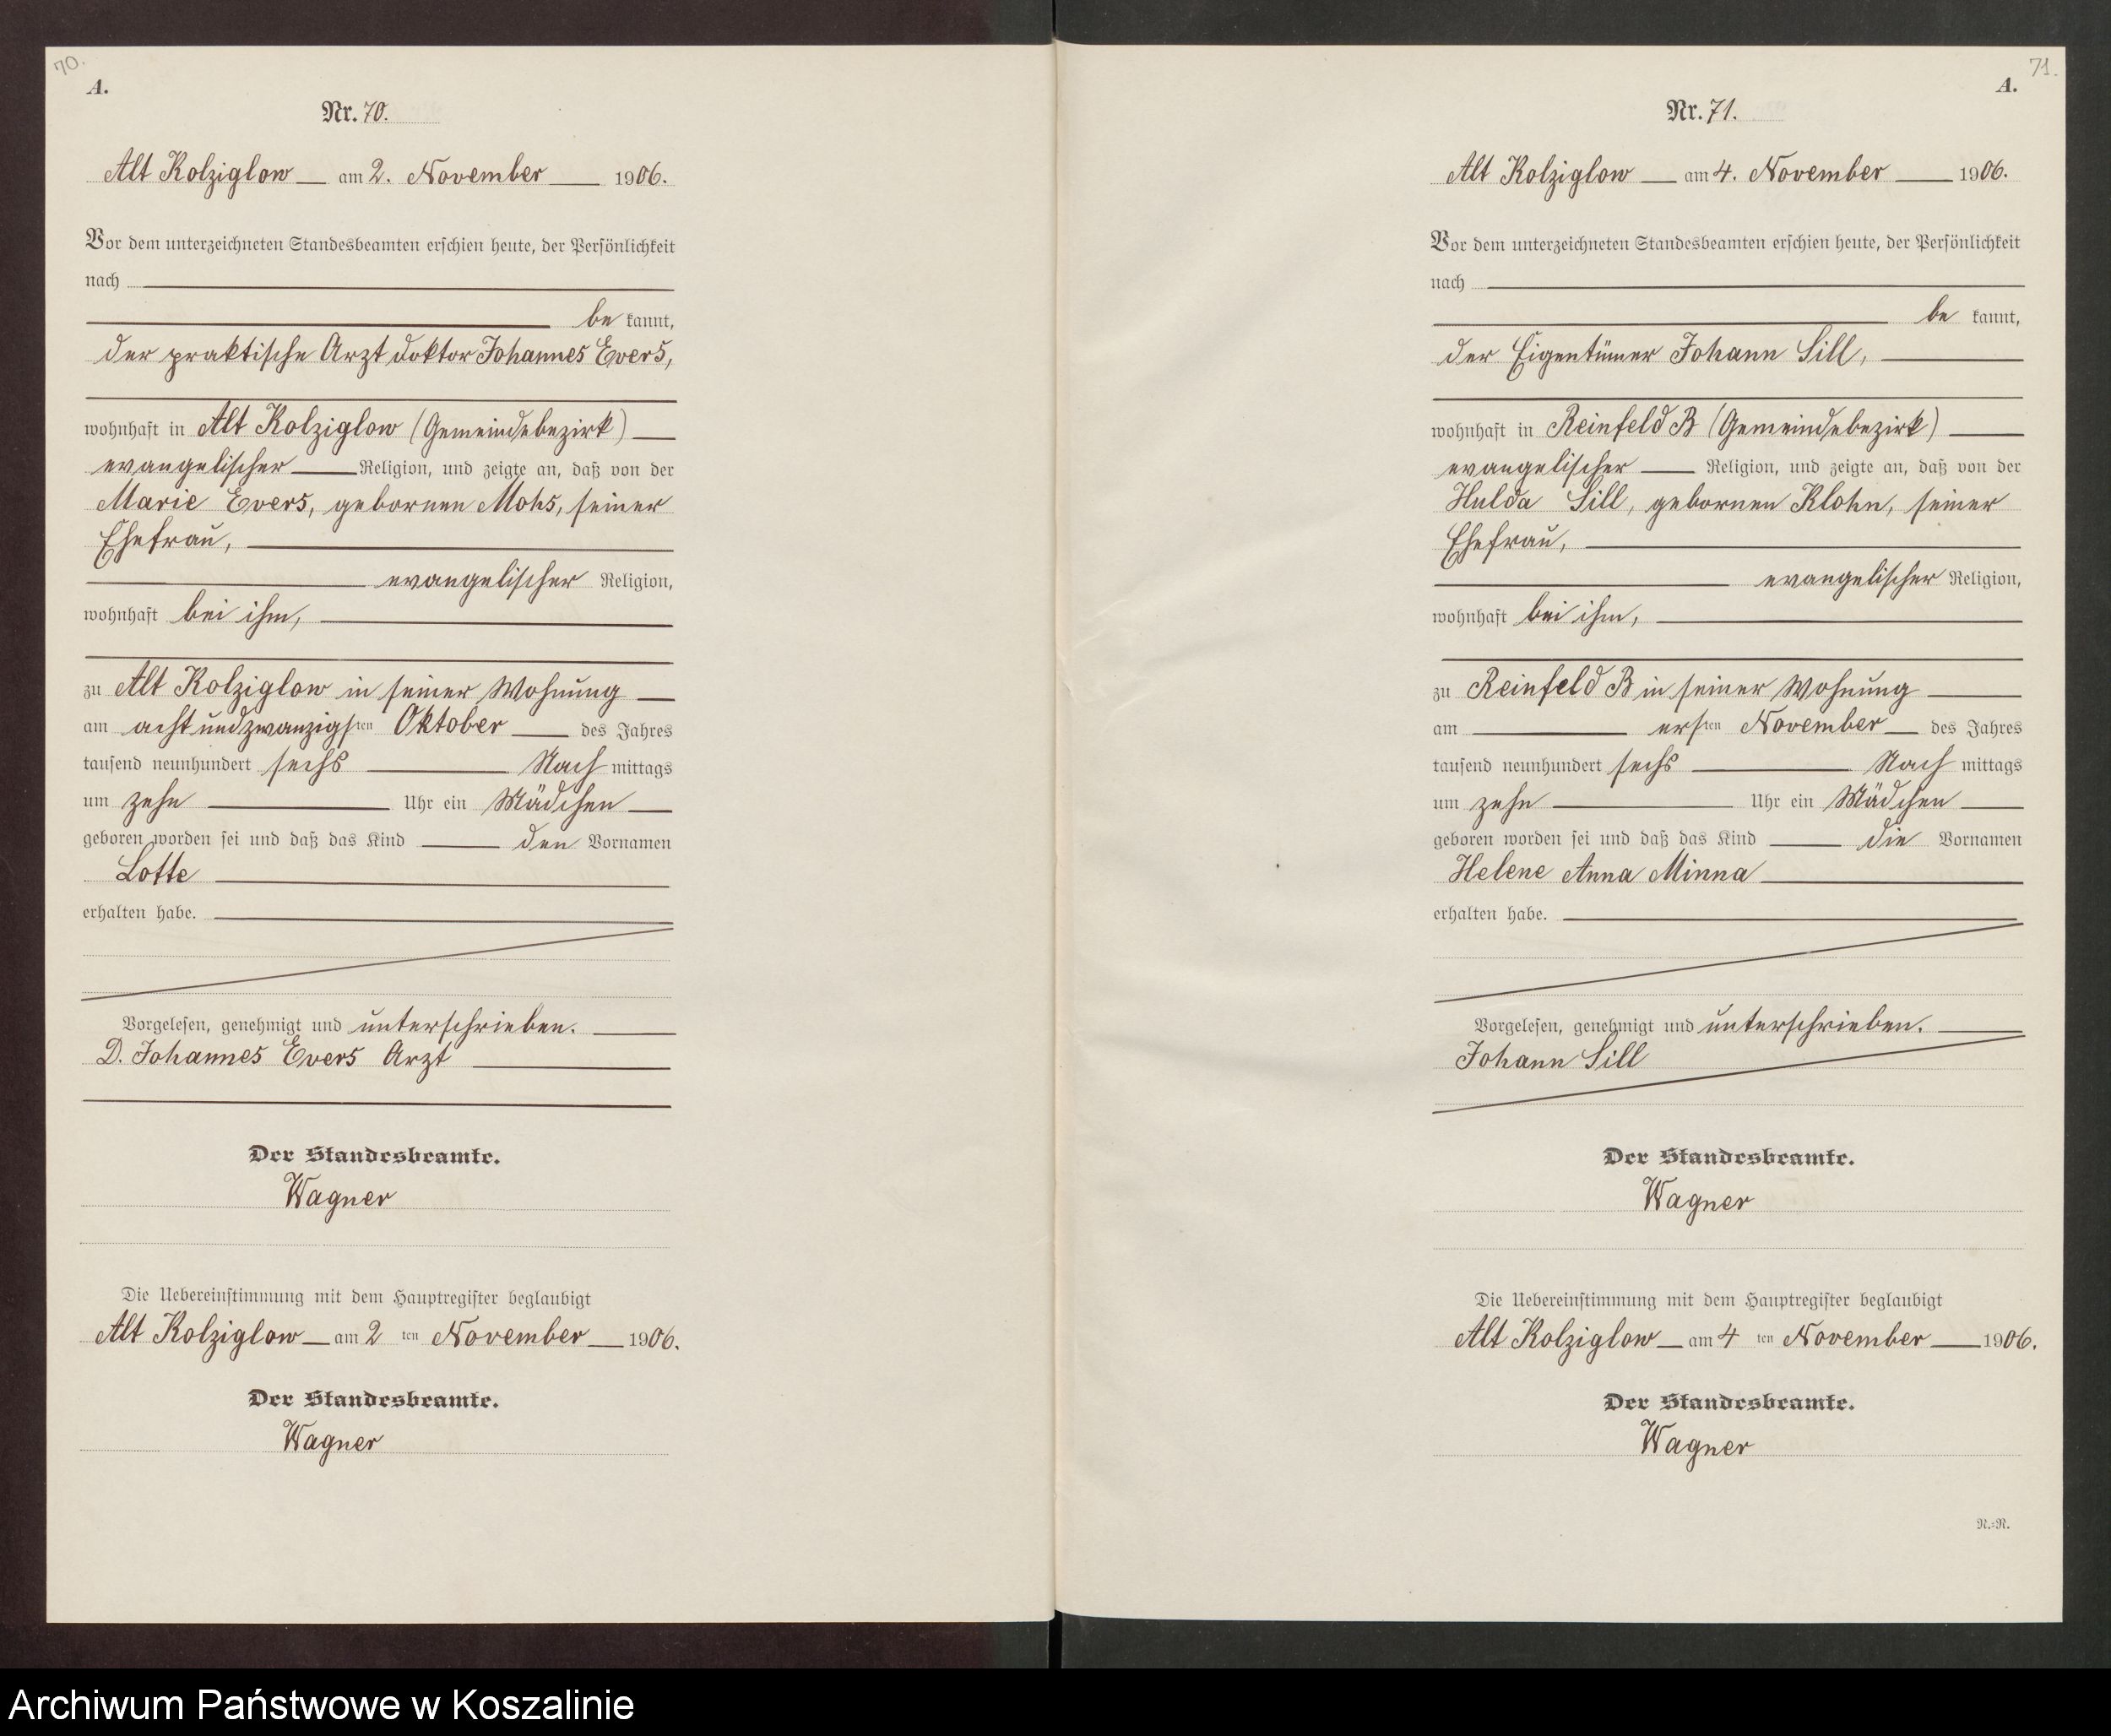 70.
A.
Nr. 70.
Alt Kolziglow am 2. November 1906.
Vor dem unterzeichneten Standesbeamten erschien heute, der Persönlichkeit
nach
be kannt,
der praktische Arzt doktor Johannes Evers,
wohnhaft in Alt Kolziglow (Gemeindebezirk)
evangelischer Religion, und zeigte an, daß von der
Marie Evers, gebornen Mohs, seiner
Ehefrau,
evangelischer Religion,
wohnhaft bei ihm,
zu Alt Kolziglow in seiner Wohnung
am acht und zwanzigsten Oktober des Jahres
tausend neunhundert sechs Nach mittags
um zehn Uhr ein Mädchen
geboren worden sei und daß das Kind den Vornamen
Lotte
erhalten habe.
Vorgelesen, genehmigt und unterschrieben.
D. Johannes Evers Arzt
Der Standesbeamte.
Wagner
Die Uebereinstimmung mit dem Hauptregister beglaubigt
Alt Kolziglow am 2 ten November 1906.
Der Standesbeamte.
Wagner
71.
A.
Nr. 71.
Alt Kolziglow am 4. November 1906.
Vor dem unterzeichneten Standesbeamten erschien heute, der Persönlichkeit
nach
be kannt,
der Eigentümer Johann Sill,
wohnhaft in Reinfeld B (Gemeindebezirk)
evangelischer Religion, und zeigte an, daß von der
Hulda Sill, gebornen Klohn, seiner
Ehefrau,
evangelischer Religion,
wohnhaft bei ihm,
zu Reinfeld B in seiner Wohnung
am ersten November des Jahres
tausend neunhundert sechs Nach mittags
um zehn Uhr ein Mädchen
geboren worden sei und daß das Kind die Vornamen
Helene Anna Minna
erhalten habe.
Vorgelesen, genehmigt und unterschrieben.
Johann Sill
Der Standesbeamte.
Wagner
Die Uebereinstimmung mit dem Hauptregister beglaubigt
Alt Kolziglow am 4 ten November 1906.
Der Standesbeamte.
Wagner
R.=R.
Archiwum Państwowe w Koszalinie